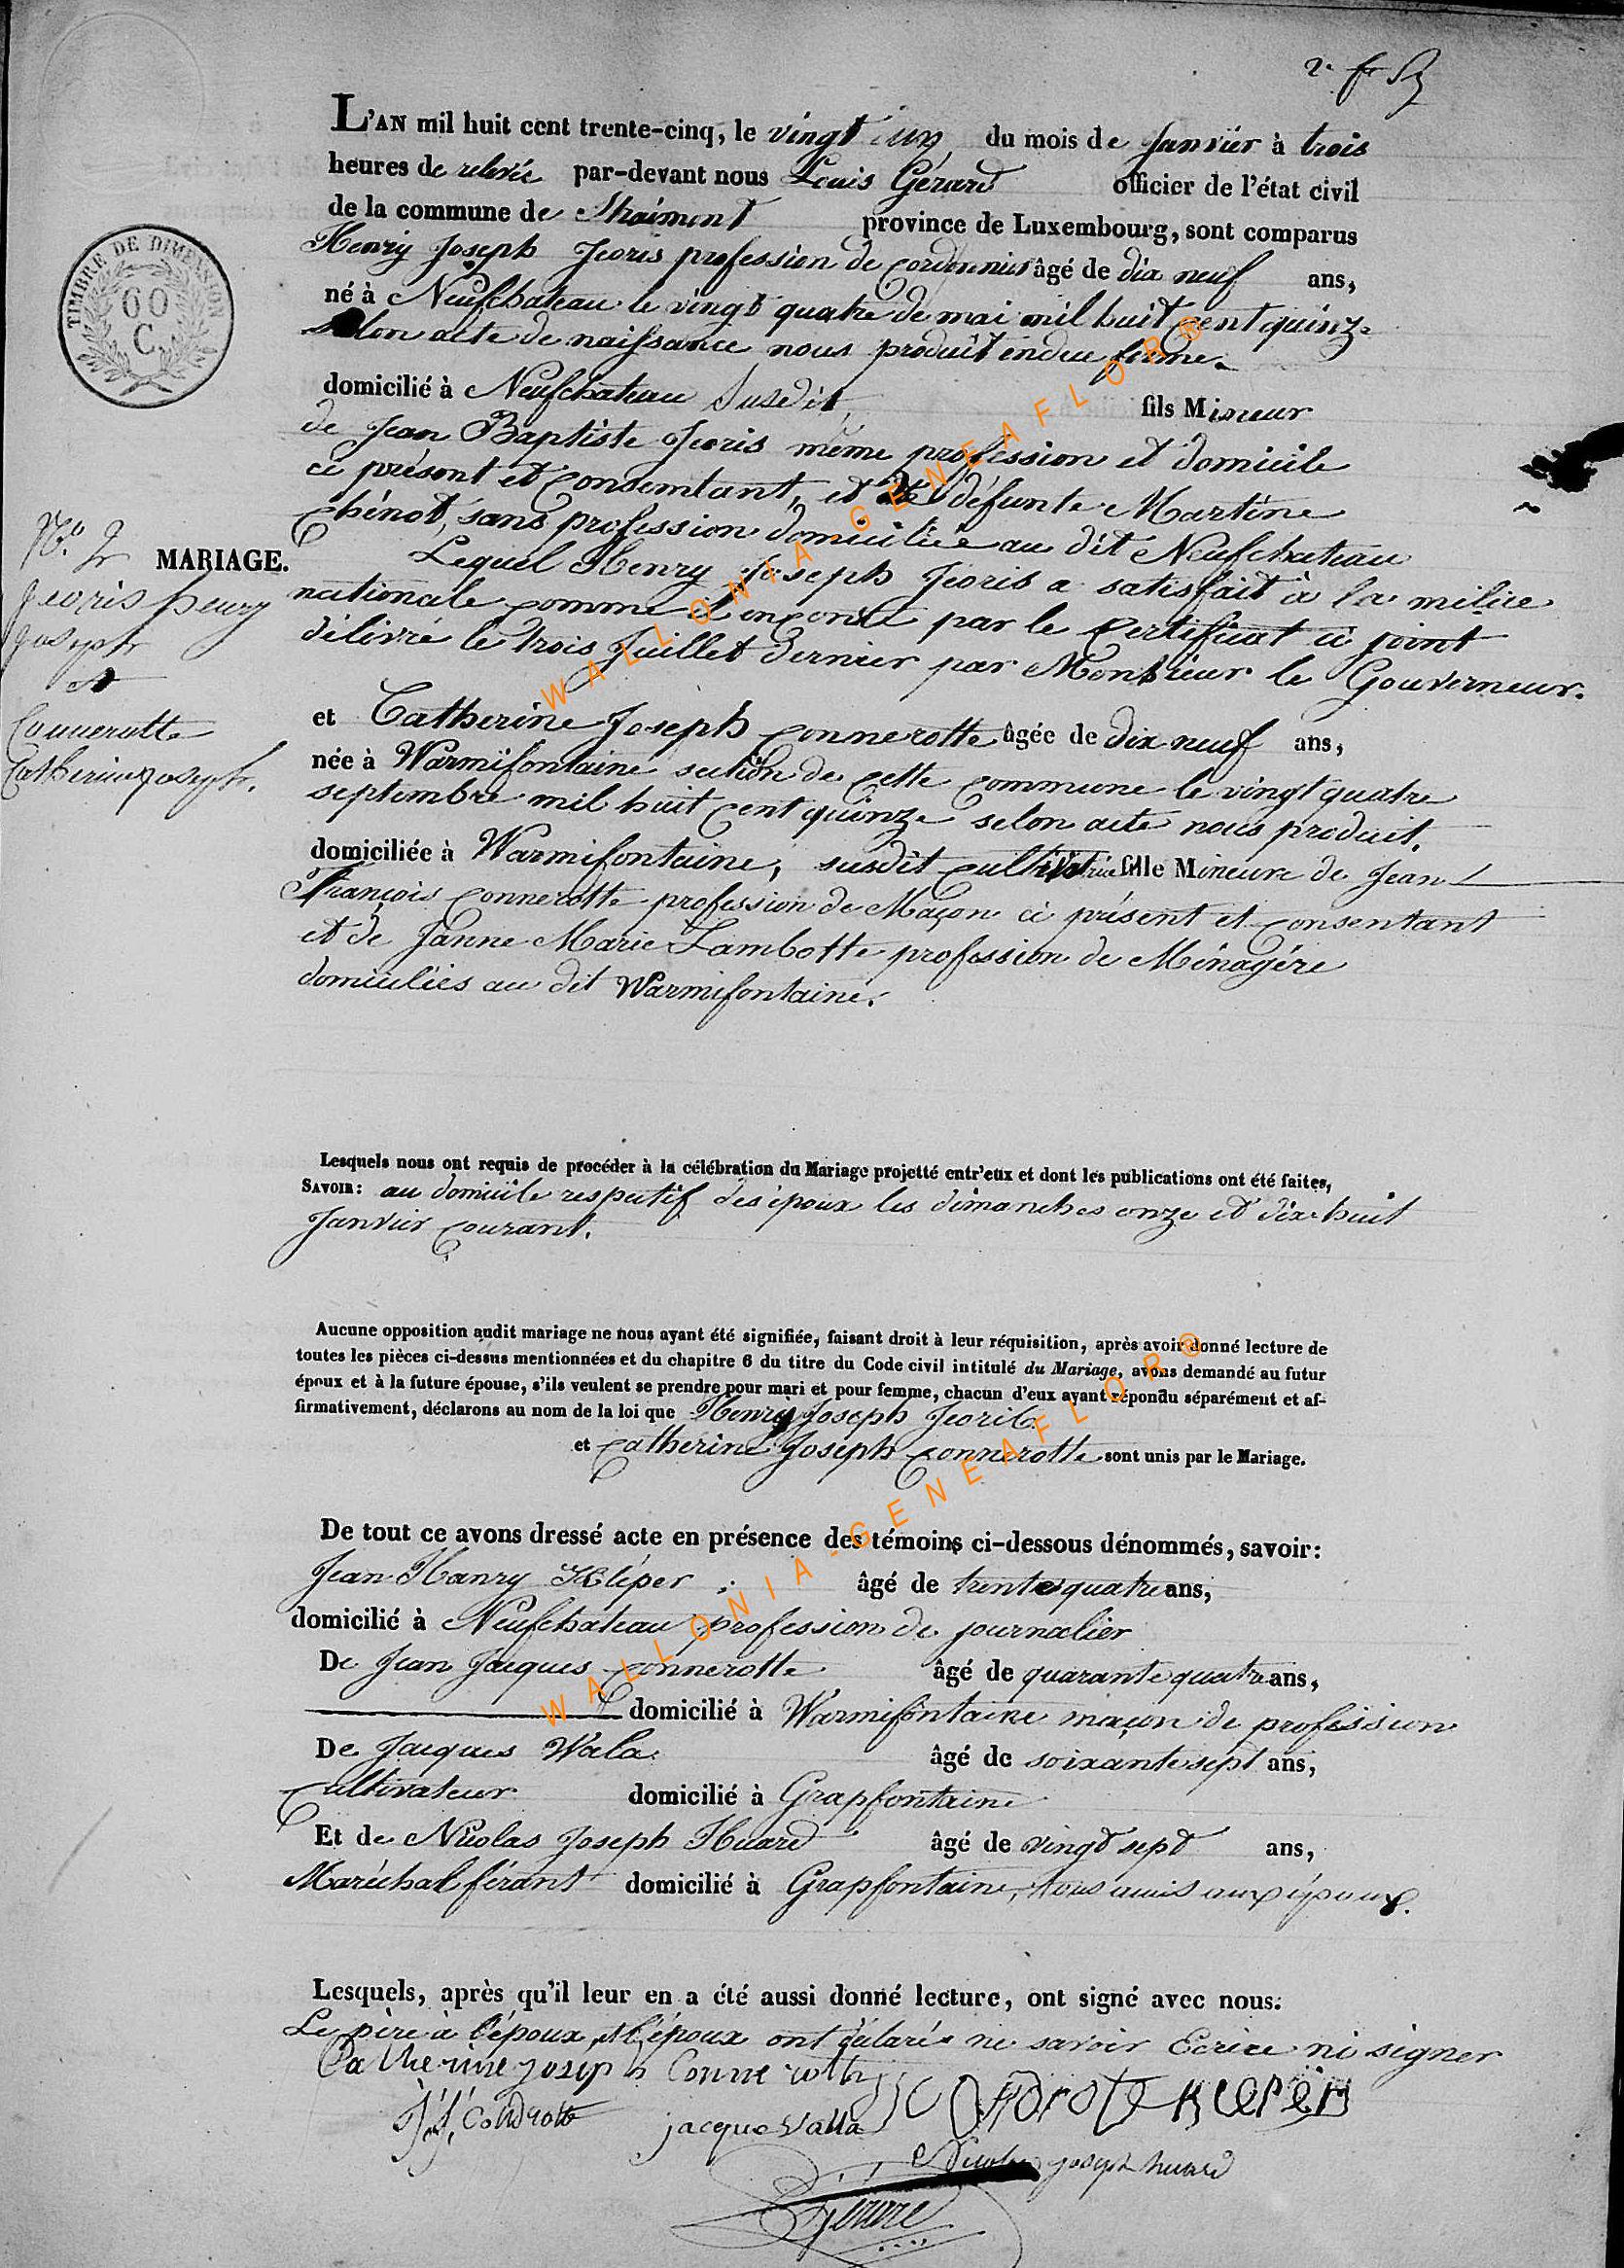 2e
L'AN mil huit cent trente-cinq, le vingt un du mois de Janvier à trois
heures de relevée par-devant nous Louis Gérard officier de l'état civil
de la commune de Straimont province de Luxembourg, sont comparus
Henry Joseph Jeoris profession de cordonnier âgé de dix neuf ans,
né à Neufchateau le vingt quatre de mai mil huit cent quinze
selon acte de naissance nous produit endue forme.
domicilié à Neufchateau Susdit, fils Mineur
de Jean Baptiste Jeoris même profession et domicile
ci présent et consentant, et de défunte Martine
Chénot, sans profession domiciliée au dit Neufchateau
Lequel Henry Joseph Jeoris a satisfait à la milice
nationale comme il en conste par le certificat ci joint
délivré le trois Juillet dernier par Monsieur le Gouverneur.
TIMBRE DE DIMENSION
60
C.
N.º 2
MARIAGE.
Jeoris henry
joseph
et
Connerotte
Catherine joseph.
et Catherine Joseph Connerotte âgée de dix neuf ans,
née à Warmifontaine section de cette commune le vingt quatre
septembre mil huit cent quinze selon acte nous produit.
domiciliée à Warmifontaine, susdit cultivatrice fille Mineure de Jean
François Connerotte profession de Maçon ci présent et consentant
et de Janne Marie Lambotte profession de Ménagére
domiciliés au dit Warmifontaine.
Lesquels nous ont requis de procéder à la célébration du Mariage projetté entr'eux et dont les publications ont été faites,
SAVOIR: au domicile respectif des époux les dimanches onze et dix huit
Janvier courant.
Aucune opposition audit mariage ne nous ayant été signifiée, faisant droit à leur réquisition, après avoir donné lecture de
toutes les pièces ci-dessus mentionnées et du chapitre 6 du titre du Code civil intitulé du Mariage, avons demandé au futur
époux et à la future épouse, s'ils veulent se prendre pour mari et pour femme, chacun d'eux ayant répondu séparément et af-
firmativement, déclarons au nom de la loi que Henry Joseph Jeoris
et Catherine Joseph Connerotte sont unis par le Mariage.
De tout ce avons dressé acte en présence des témoins ci-dessous dénommés, savoir:
Jean Hanry Kléper, âgé de trente quatre ans,
domicilié à Neufchateau profession de journalier
De Jean Jacques Connerotte âgé de quarante quatre ans,
domicilié à Warmifontaine maçon de profession
De Jacques Wala âgé de soixante sept ans,
Cultivateur domicilié à Grapfontaine
Et de Nicolas Joseph Huard âgé de vingt sept ans,
Maréchal férant domicilié à Grapfontaine, tous amis aux époux.
Lesquels, après qu'il leur en a été aussi donné lecture, ont signé avec nous.
Le père à l'époux et l'époux ont délarés ne savoir Ecrire ni signer
Catherine joseph Connerotte
jacque Valla
Nicolas joseph huard
Gérard
WALLONIA-GENEAFLOR®
WALLONIA-GENEAFLOR®